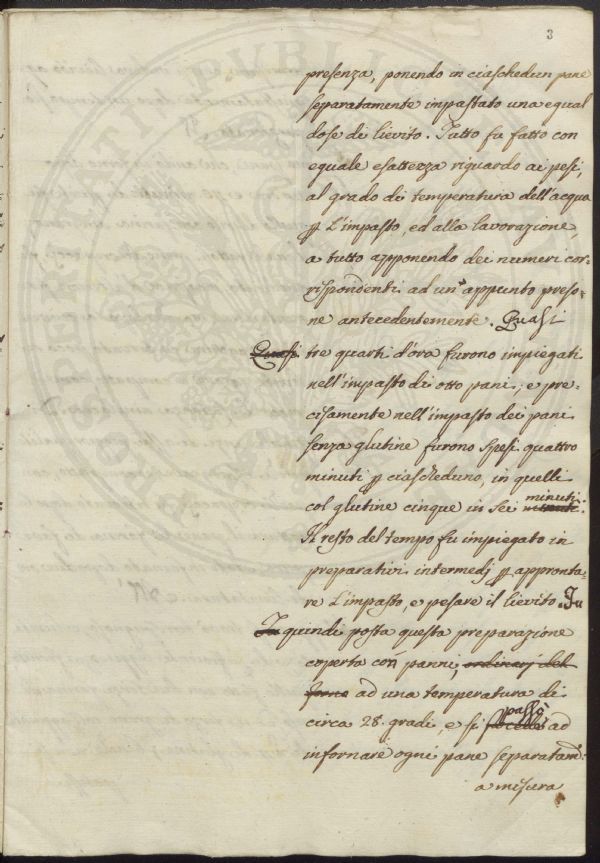 3
presenza, ponendo in ciaschedun pane
separatamente impastato una egual
dose di lievito. Tutto fu fatto con
eguale esattezza riguardo ai pesi,
al grado di temperatura dell'acqua
ꝑ l'impasto, ed alla lavorazione,
a tutto apponendo dei numeri cor-
rispondenti ad un appunto preso-
ne antecedentemente. Quasi
Quasi tre quarti d'ora furono impiegati
nell'impasto di otto pani; e pre-
cisamente nell'impasto dei pani
senza glutine furono spesi quattro
minuti ꝑ ciascheduno, in quelli
col glutine cinque in sei minuti.
Il resto del tempo fu impiegato in
preparativi intermedj ꝑ appronta-
re l'impasto, e pesare il lievito. Fu
Fu quindi posta questa preparazione
coperta con panni, ordinarj del
forno ad una temperatura di
circa 28. gradi, e si passò ad
infornare ogni pane separatam:
a misura